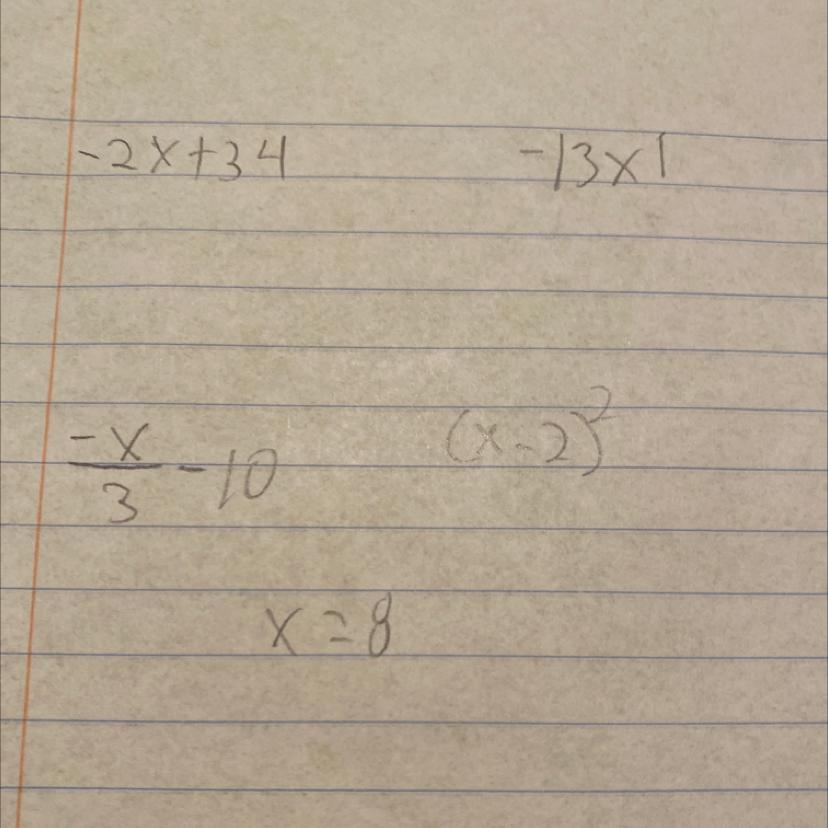 -2x+34 -13x1
-x/3 -10 (x-2)²
x=8